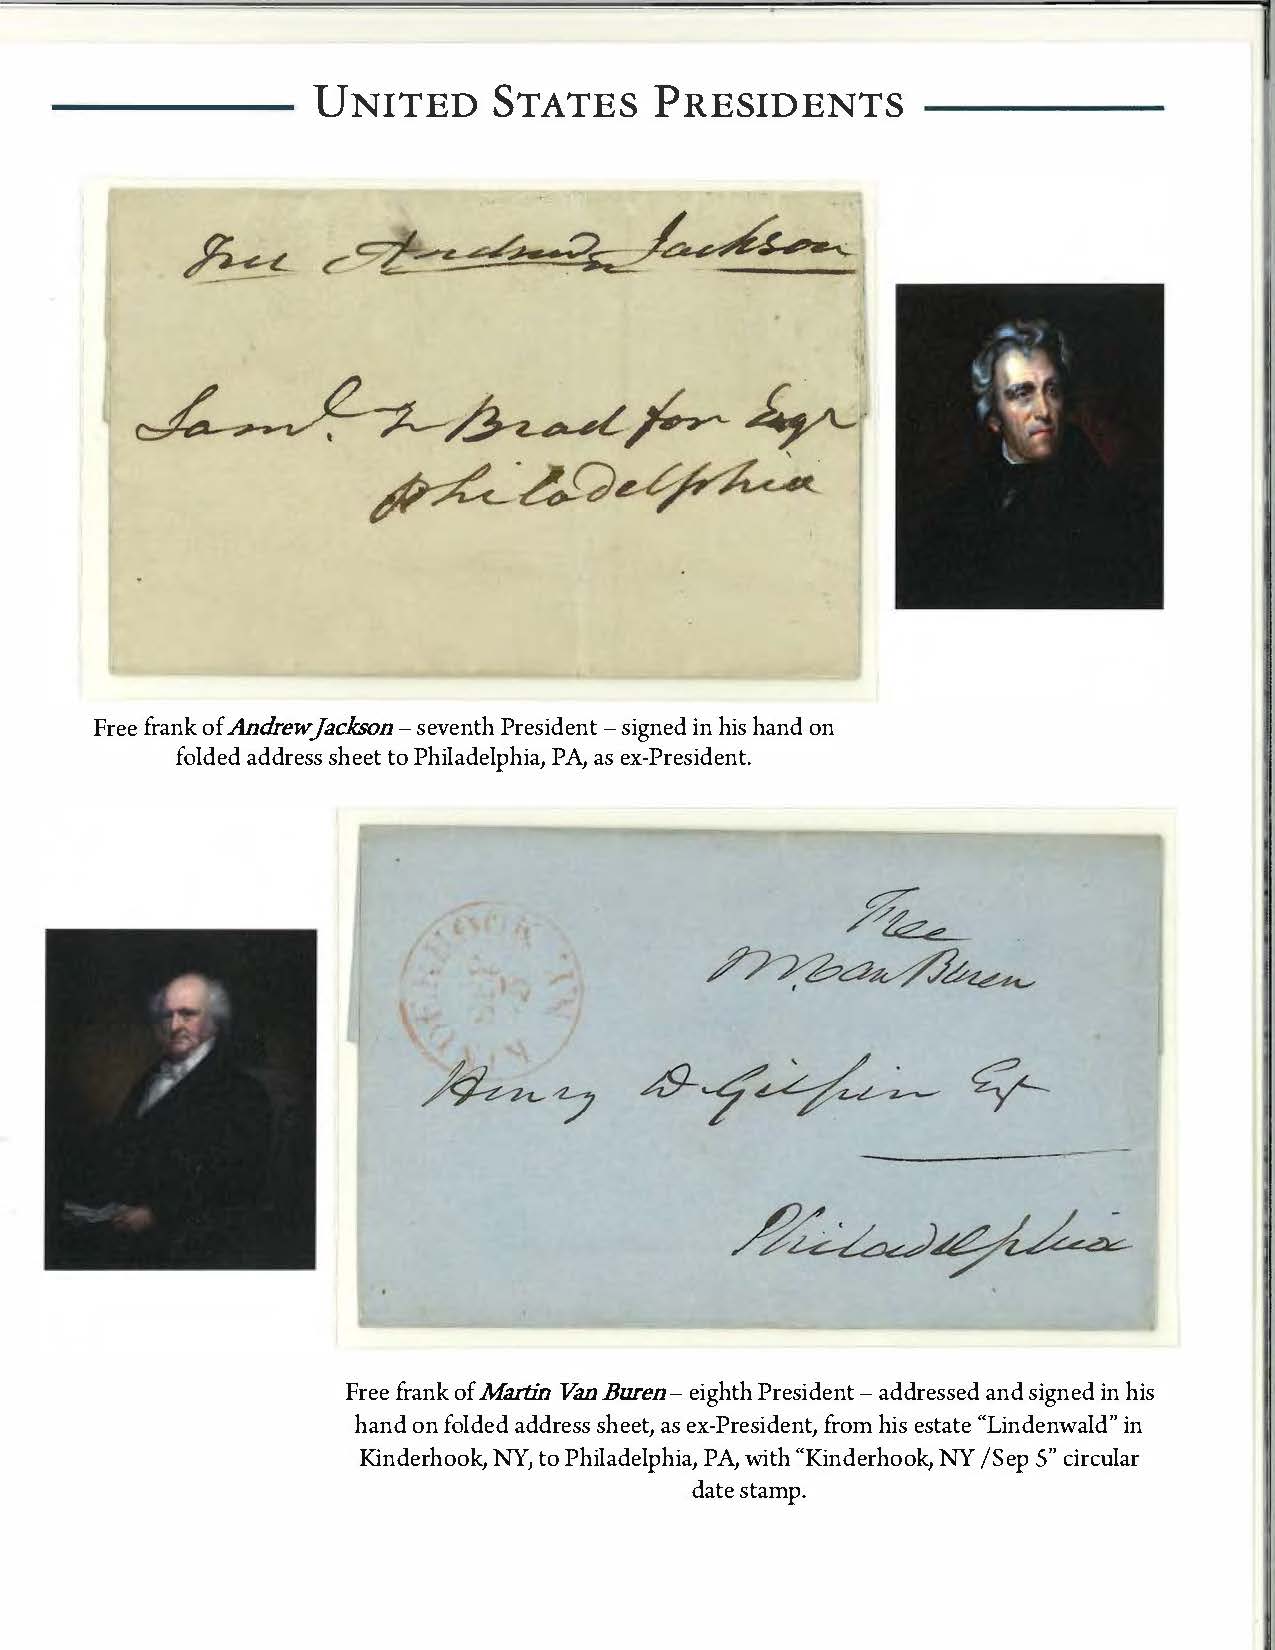 UNITED STATES PRESIDENTS
Free Andrew Jackson
Saml. Bradford Esqr
Philadelphia
Free frank of Andrew Jackson – seventh President – signed in his hand on
folded address sheet to Philadelphia, PA, as ex-President.
KINDERHOOK NY
SEP
5
Free
M. Van Buren
Henry D. Gilpin Esq
Philadelphia
Free frank of Martin Van Buren – eighth President – addressed and signed in his
hand on folded address sheet, as ex-President, from his estate “Lindenwald” in
Kinderhook, NY, to Philadelphia, PA, with “Kinderhook, NY /Sep 5” circular
date stamp.